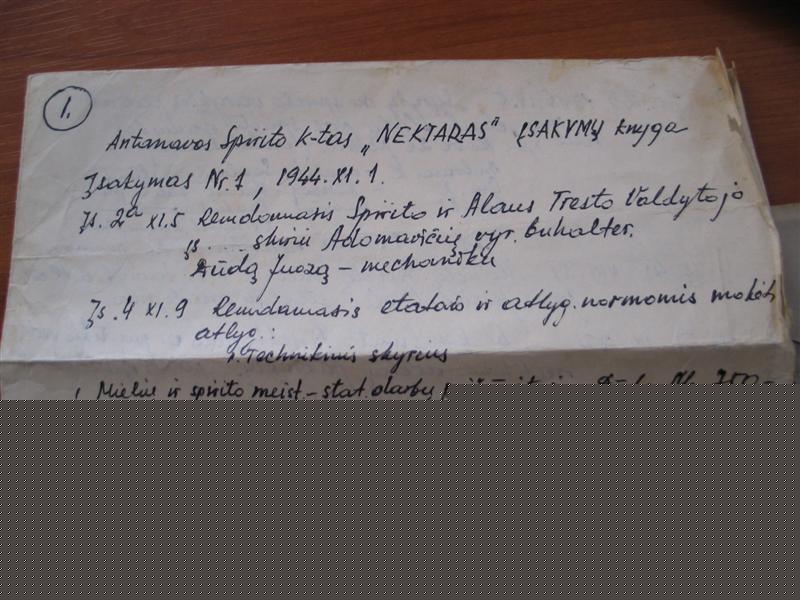 1.
Antanavos Spirito k-tas „NEKTARAS" ĮSAKYMŲ knyga
Įsakymas Nr. 1, 1944.XI.1.
Įs. 2a XI.5 Remdamasis Spirito ir Alaus Tresto Valdytojo
įs. .... skiriu Adomavičių vyr. buhalter.
Juozą – mechaniku
Įs. 4 XI.9 Remdamasis etatais ir atlyg. normomis mokėti
atlyg.:
1. Technikinis skyrius
1. Mielių ir spirito meist – stat. darbų